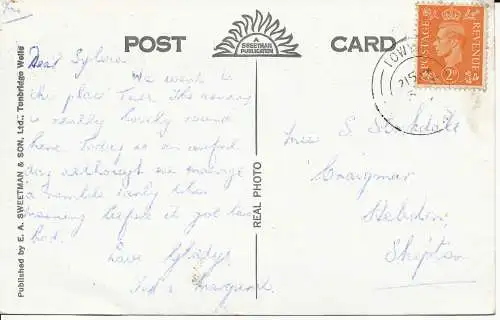 Fri
POST CARD
A
SWEETMAN
PUBLICATION
Dear Sylvia
We went to
the place Tues. The scenery
is really lovely round
here. Today is an awful
day although we managed
a ramble early this
morning before it got too
bad.
Love Gladys
Margaret
Published by E. A. SWEETMAN & SON, Ltd., Tunbridge Wells
REAL PHOTO
POSTAGE
REVENUE
2D
215
Miss S Stockdale
Craigmar
Hebden
Skipton